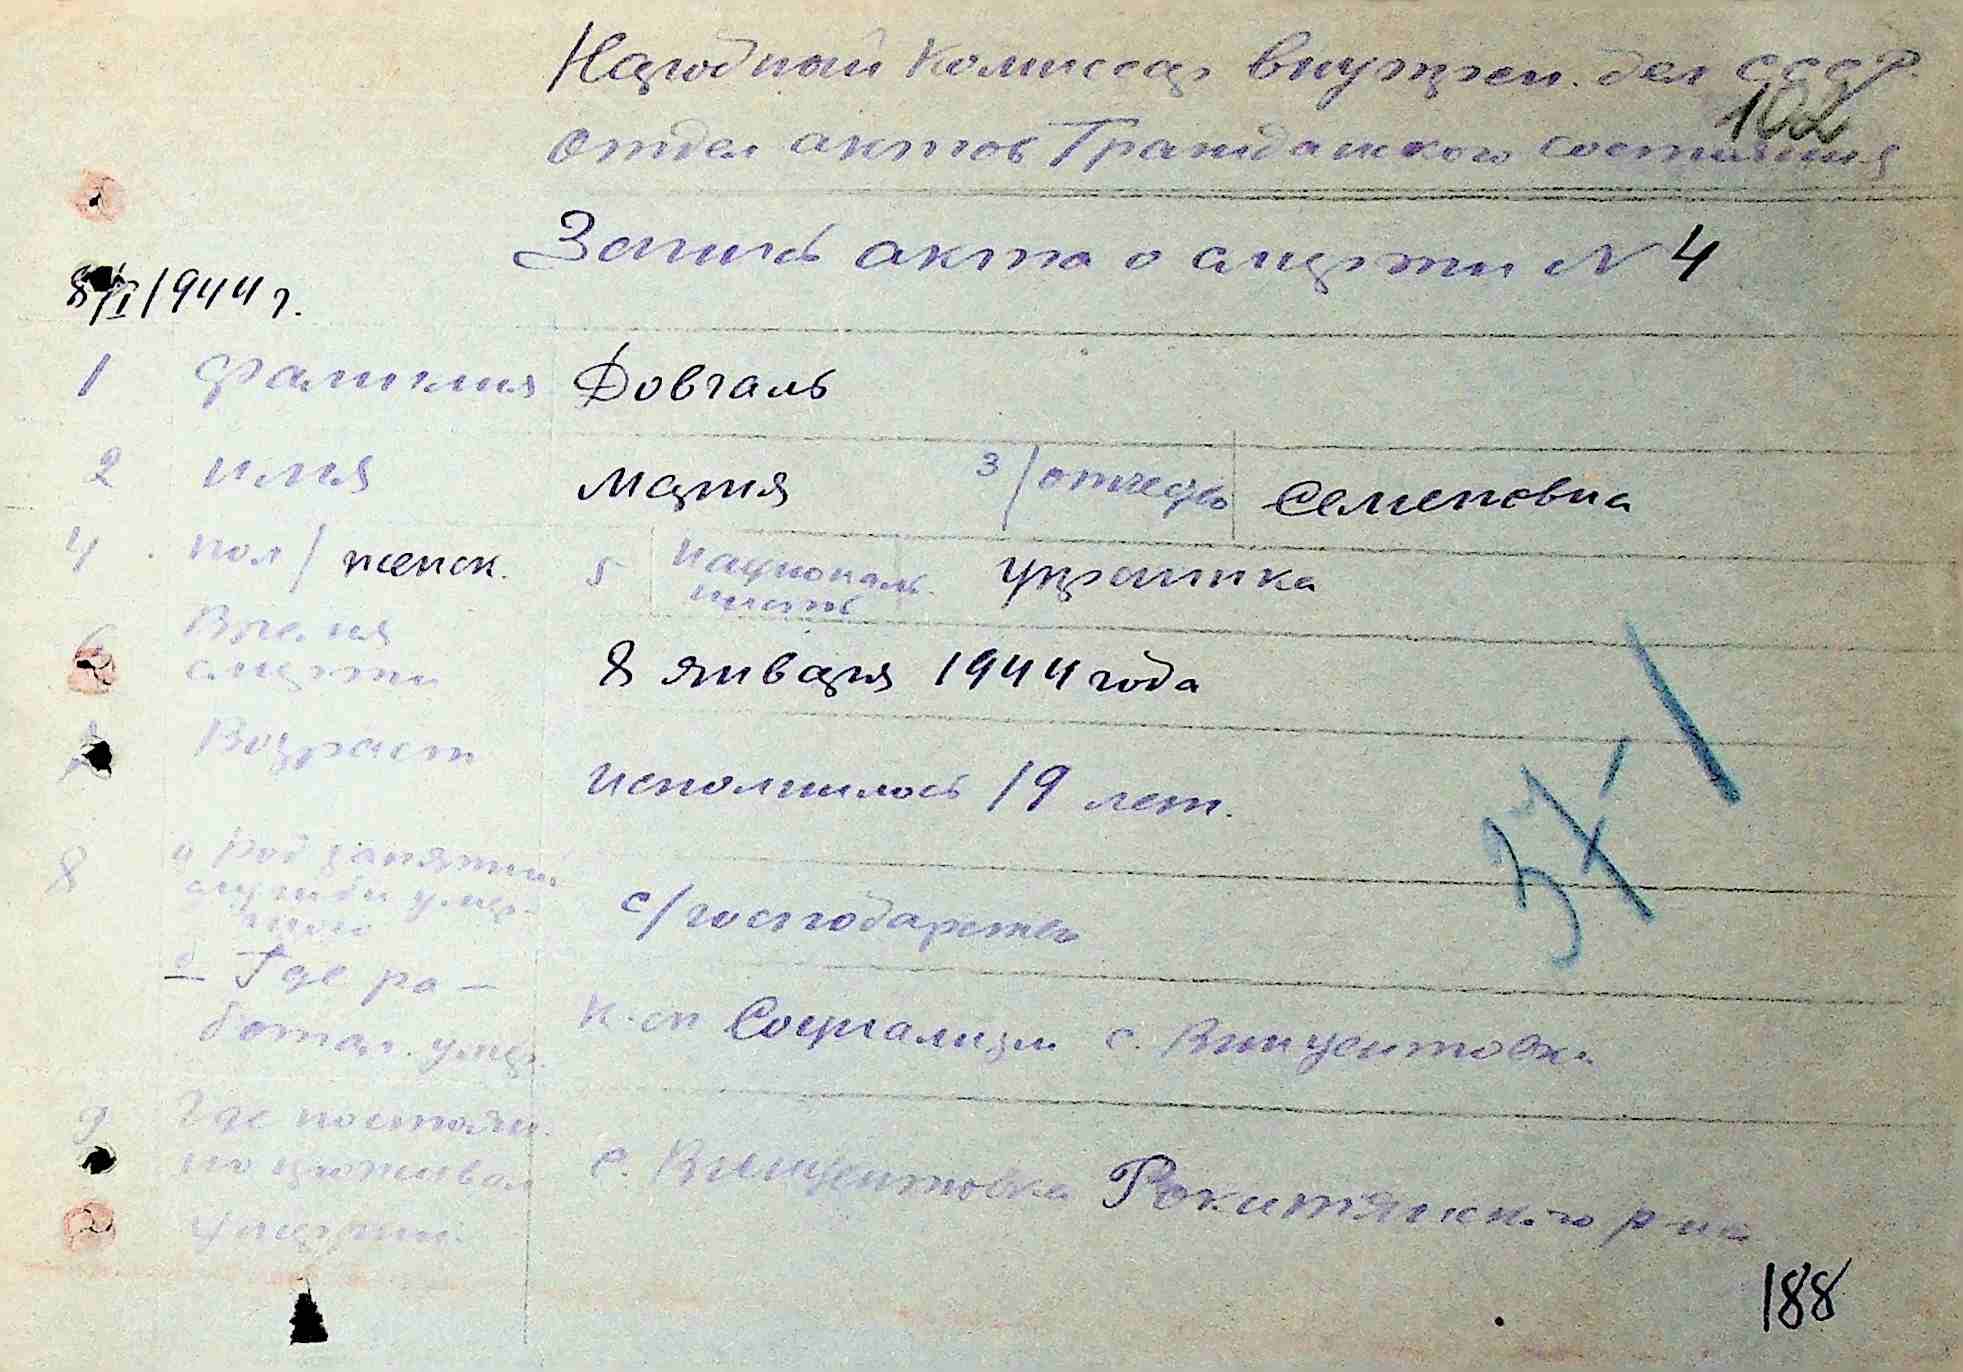 Народный Комиссар внутрен. дел СССР.
102
отдел актов Гражданского состояния
Запись акта о смерти N 4
8/I 1944 г.
1 Фамилия Довгаль
2 имя Мария 3/ отчество Семеновна
4 пол/ женск. 5 Национальность украинка
6 Время смерти 8 января 1944 года
7 Возраст исполнилось 19 лет.
8 а Род занятий
службы умер-
шего с/господарство
б Где ра-
ботал умер. к-сп Социализм с. Винцентовка
9 Где постоян-
но проживал с. Винцентовка Рокитянского р-на
умерший
188